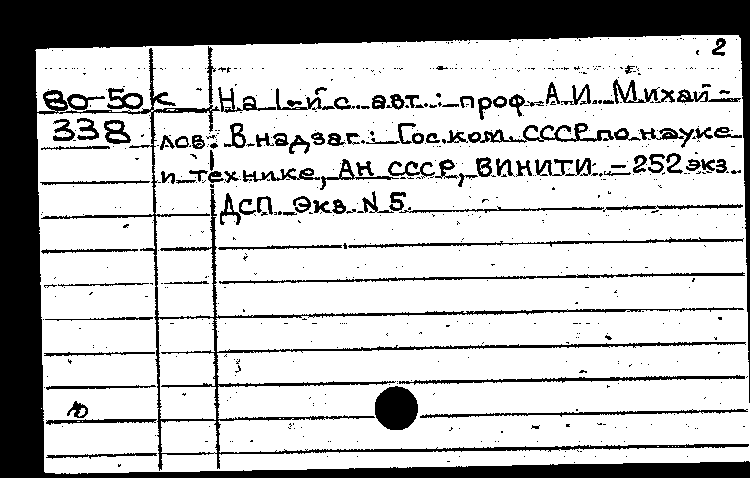 2
80-50к На 1-й с авт.: проф А И Михай-
338 лов. В надзаг.: Гос. ком. СССР по науке
и технике, АН СССР, ВИНИТИ - 252 экз
ДСП Экз N 5.
Ю